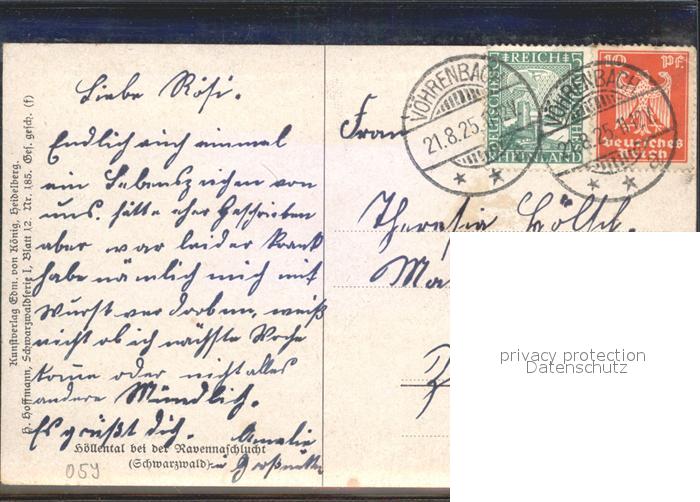 Liebe Rösi.
Endlich auch einmal
ein Lebenszeichen von
uns, hätte eher geschrieben
aber war leider krank
habe nämlich mich mit
Wurst verdorben, weiß
nicht ob ich nächste Woche
komme oder nicht alles
andere Mündlich.
Es grüßt dich. Amalie
u Großmutter
Höllental bei der Ravennaschlucht
(Schwarzwald)
059
Kunstverlag Edm. von König, Heidelberg.
H. Hoffmann, Schwarzwaldserie I, Blatt 12. Nr. 185. Ges. gesch. (f)
VÖHRENBACH
21.8.25.
DEUTSCHES REICH 5
RHEINLAND
VÖHRENBACH
21.8.25.11-12V
10 Pf.
Deutsches
Reich
Frau
Theresia
privacy protection
Datenschutz